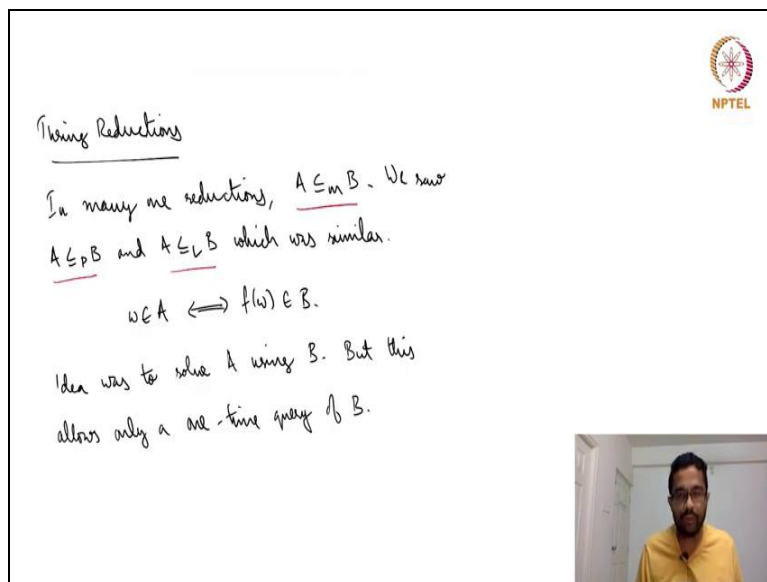 NPTEL
Turing Reductions
In many one reductions, A ≤m B. We saw
A ≤p B and A ≤L B which was similar.
w ∈ A ⟺ f(w) ∈ B.
Idea was to solve A using B. But this
allows only a one-time query of B.